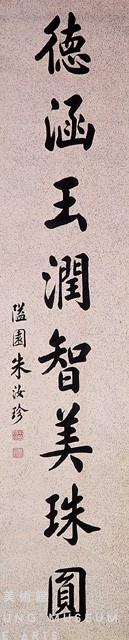 德涵玉潤智美珠圓
隘園朱汝珍
美術館
UNG MUSEUM
E ARTS